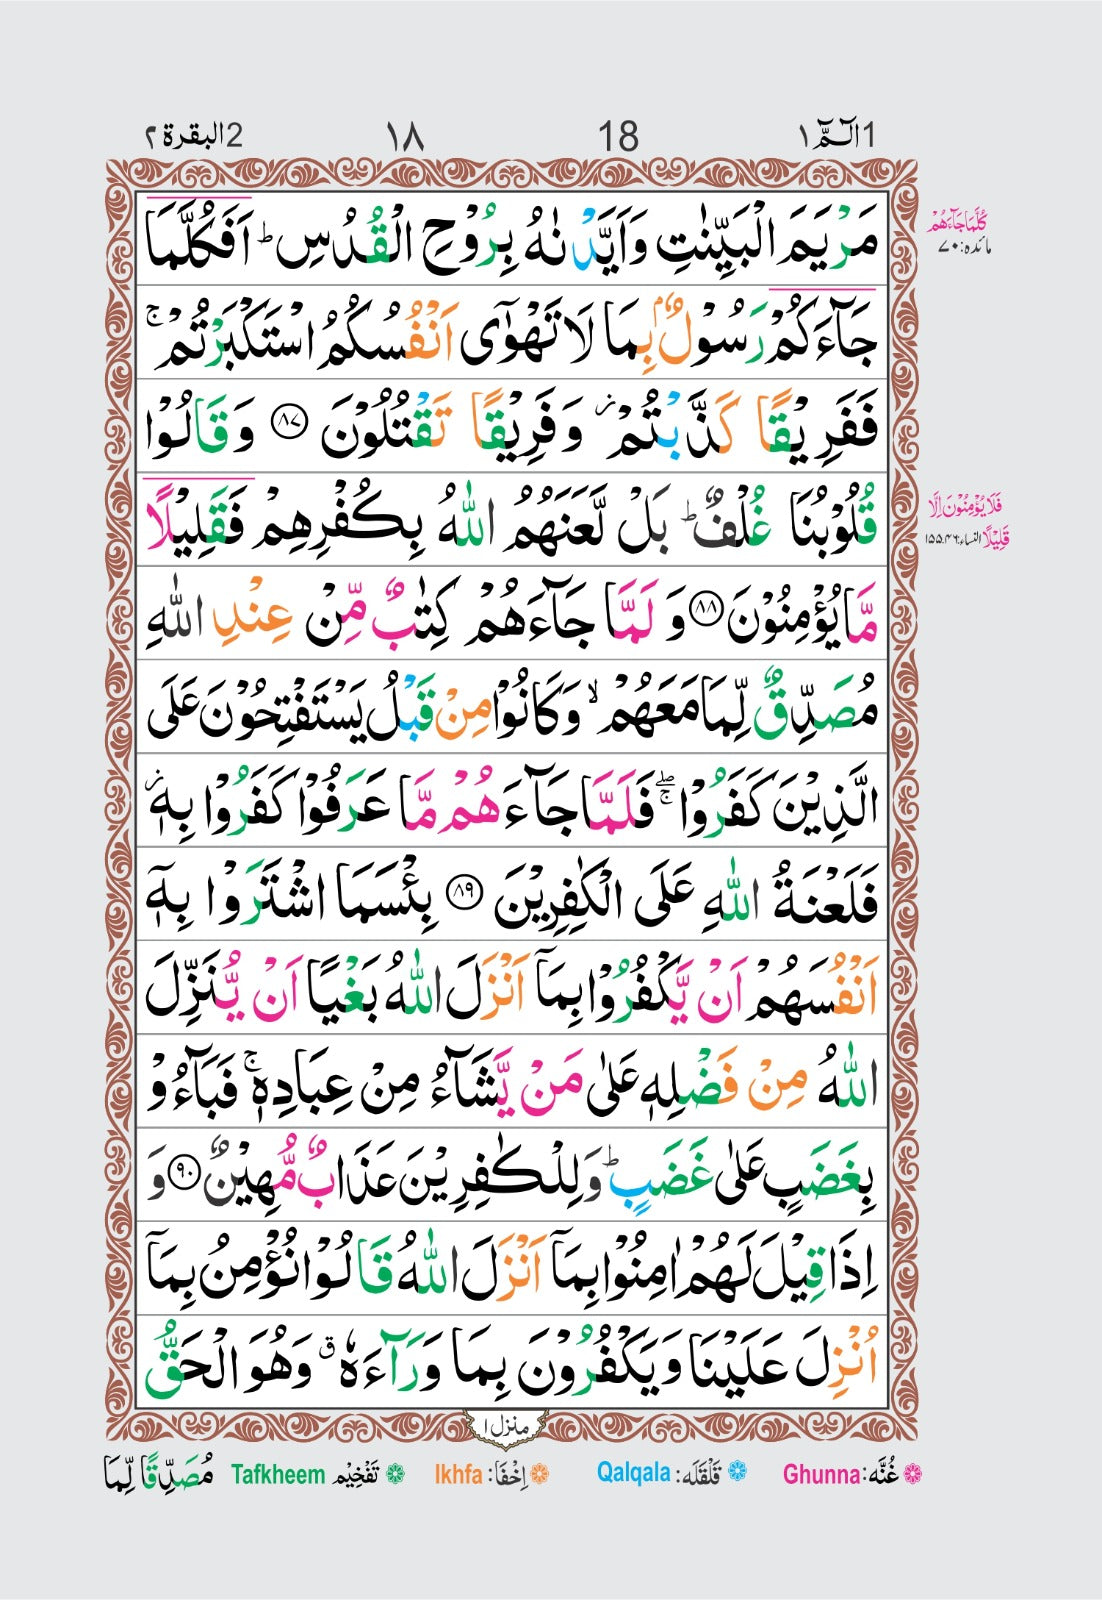 1 الٓمّٓ ١ 18 ١٨ 2 البقرة ٢
مَرْيَمَ الْبَيِّنٰتِ وَاَيَّدْنٰهُ بِرُوْحِ الْقُدُسِ ؕ اَفَكُلَّمَا
كُلَّمَا جَآءَهُمْ
مائدہ: ٧٠
جَآءَكُمْ رَسُوْلٌۢ بِمَا لَا تَهْوٰٓى اَنْفُسُكُمُ اسْتَكْبَرْتُمْ ۚ
فَفَرِيْقًا كَذَّبْتُمْ ؗ وَ فَرِيْقًا تَقْتُلُوْنَ ﴿٨٧﴾ وَ قَالُوْا
قُلُوْبُنَا غُلْفٌ ؕ بَلْ لَّعَنَهُمُ اللّٰهُ بِكُفْرِهِمْ فَقَلِيْلًا
فَلَا يُؤْمِنُوْنَ اِلَّا
قَلِيْلًا النساء: ١٥٥،٤٦
مَّا يُؤْمِنُوْنَ ﴿٨٨﴾ وَ لَمَّا جَآءَهُمْ كِتٰبٌ مِّنْ عِنْدِ اللّٰهِ
مُصَدِّقٌ لِّمَا مَعَهُمْ ۙ وَ كَانُوْا مِنْ قَبْلُ يَسْتَفْتِحُوْنَ عَلَى
الَّذِيْنَ كَفَرُوْا ۖۚ فَلَمَّا جَآءَهُمْ مَّا عَرَفُوْا كَفَرُوْا بِهٖ ؗ
فَلَعْنَةُ اللّٰهِ عَلَى الْكٰفِرِيْنَ ﴿٨٩﴾ بِئْسَمَا اشْتَرَوْا بِهٖۤ
اَنْفُسَهُمْ اَنْ يَّكْفُرُوْا بِمَآ اَنْزَلَ اللّٰهُ بَغْيًا اَنْ يُّنَزِّلَ
اللّٰهُ مِنْ فَضْلِهٖ عَلٰى مَنْ يَّشَآءُ مِنْ عِبَادِهٖ ۚ فَبَآءُوْ
بِغَضَبٍ عَلٰى غَضَبٍ ؕ وَلِلْكٰفِرِيْنَ عَذَابٌ مُّهِيْنٌ ﴿٩٠﴾ وَ
اِذَا قِيْلَ لَهُمْ اٰمِنُوْا بِمَآ اَنْزَلَ اللّٰهُ قَالُوْا نُؤْمِنُ بِمَآ
اُنْزِلَ عَلَيْنَا وَيَكْفُرُوْنَ بِمَا وَرَآءَهٗ ۗ وَهُوَ الْحَقُّ
منزل ١
غُنَّه: Ghunna قَلْقَلَه: Qalqala اِخْفَا: Ikhfa تَفْخِيْم Tafkheem مُصَدِّقًا لِّمَا